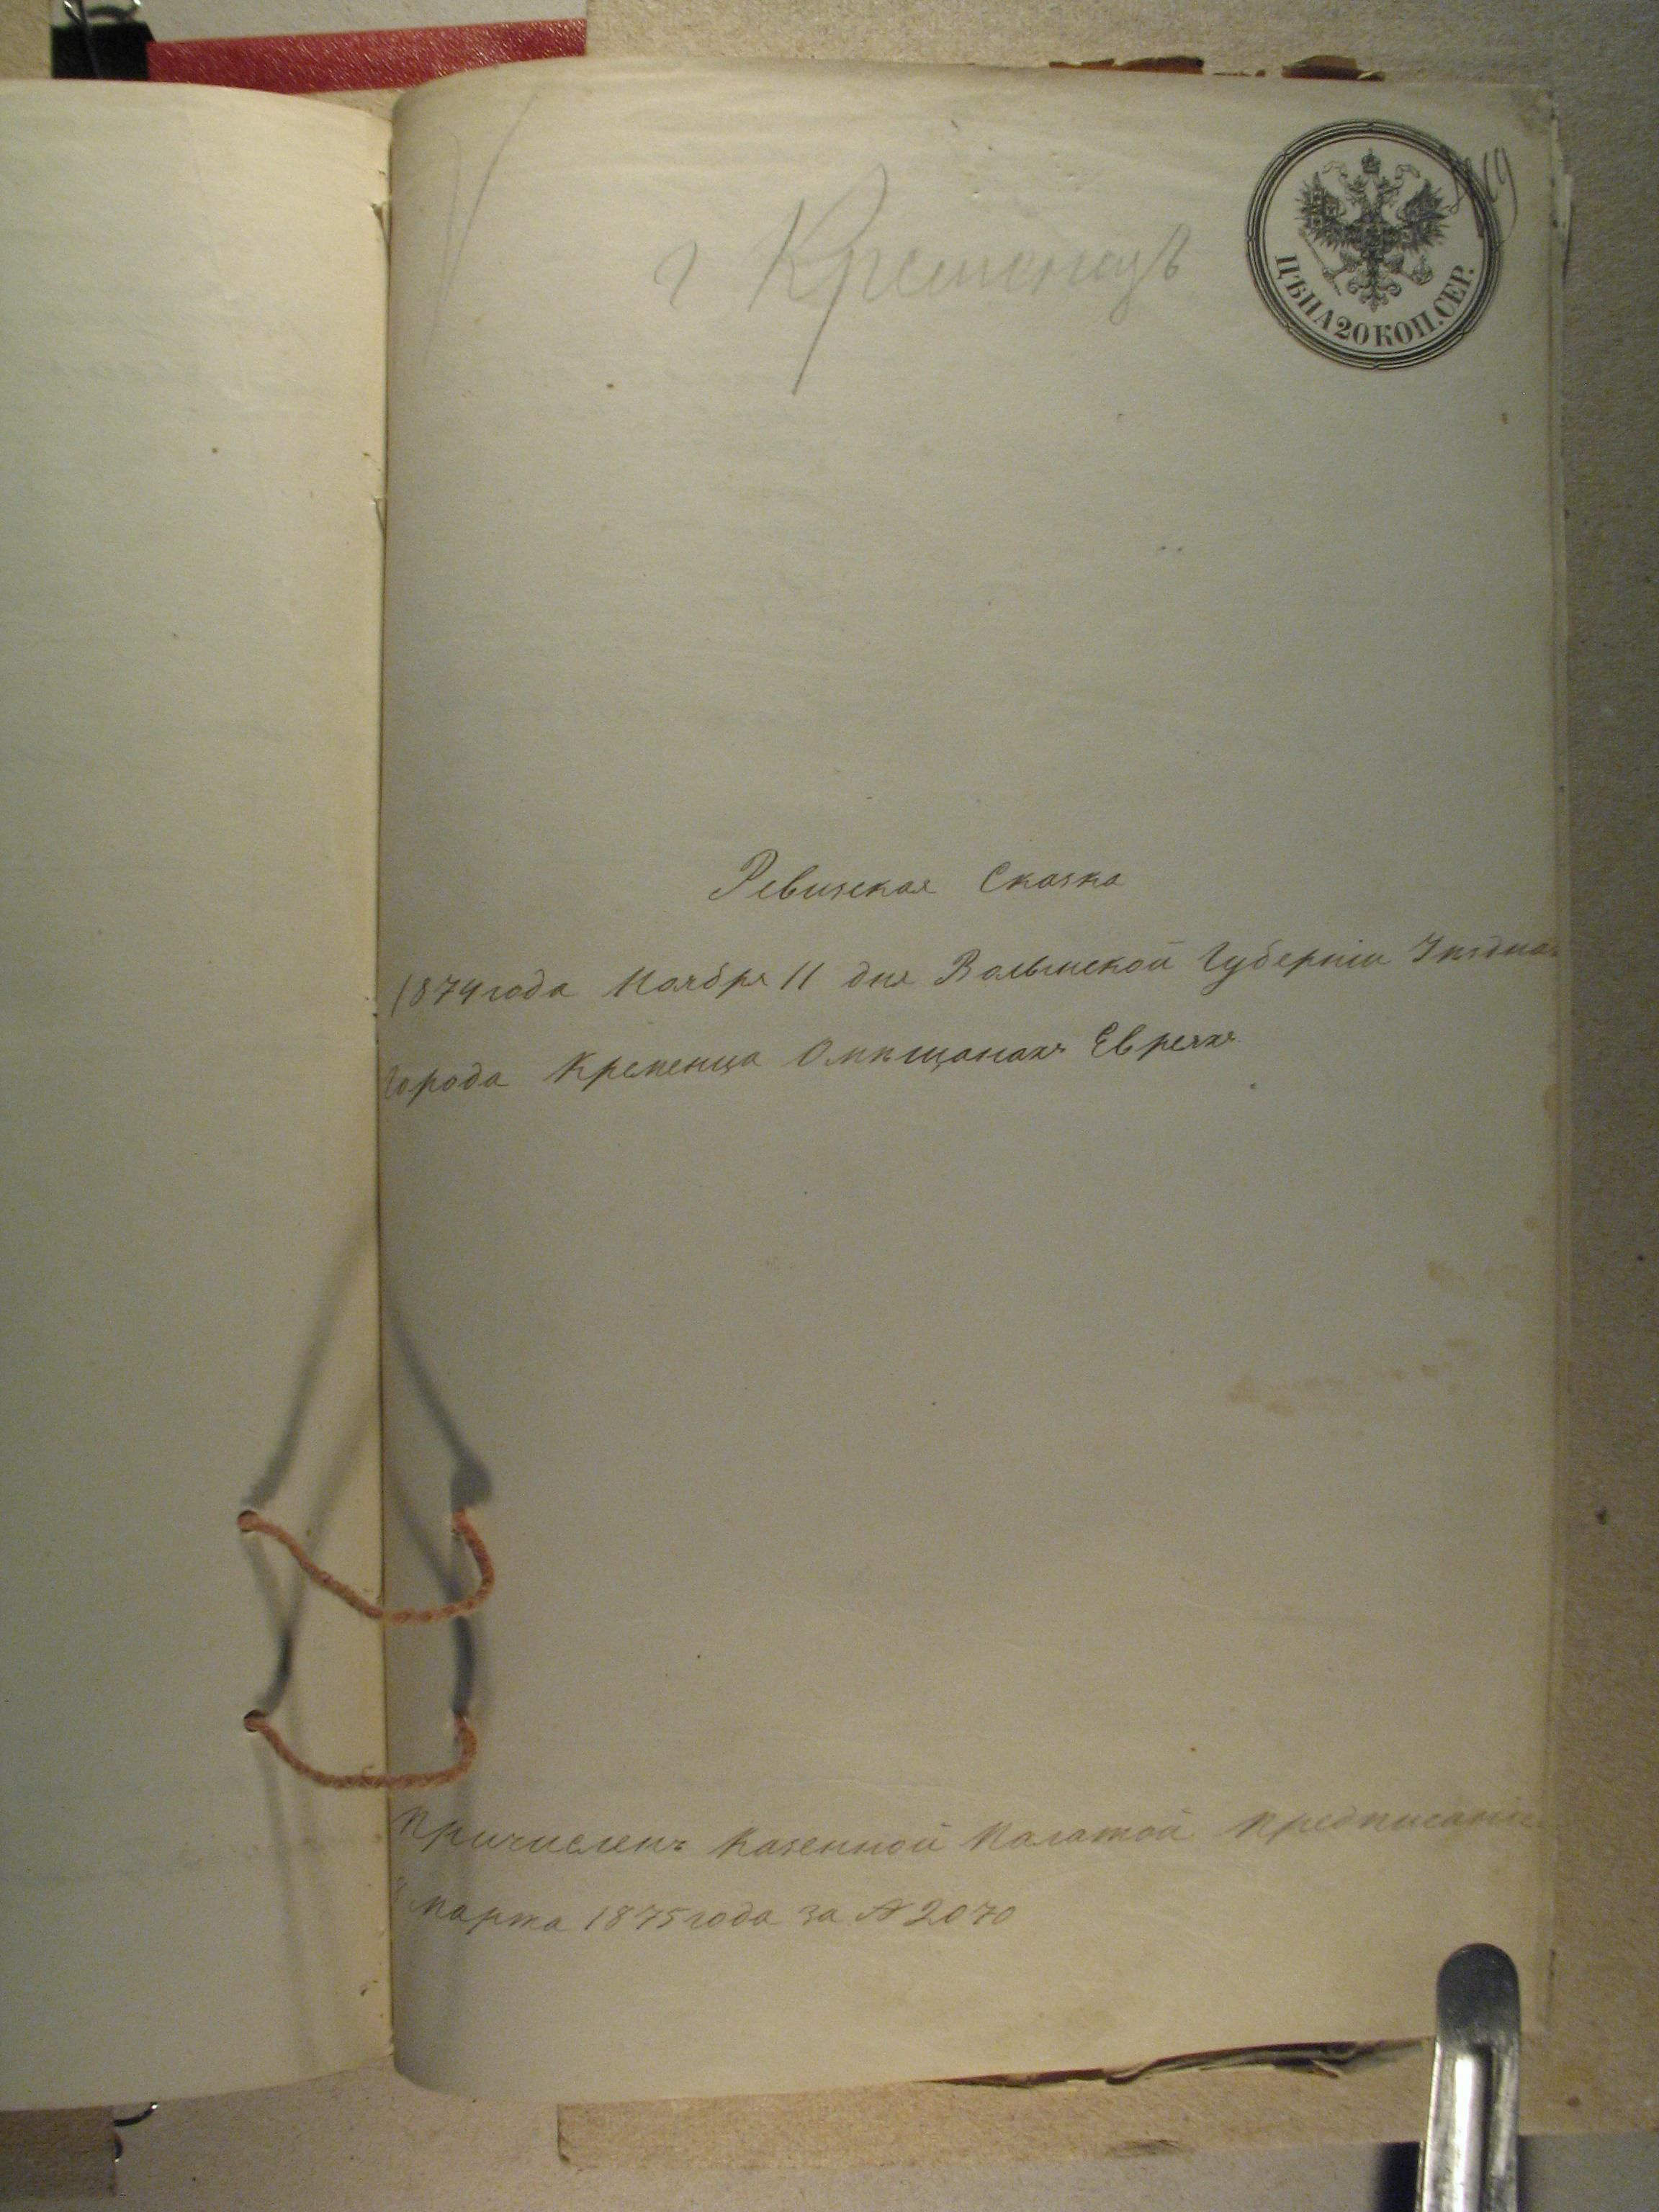 г Кременецъ
ЦѢНА 20 КОП. СЕР.
Ревизская Сказка
1874 года Ноября 11 дня Волынской Губерніи Уѣзднаго
города Кременца О мѣщанахъ Евреяхъ
Причисленъ Казенной Палатой предписаніе
Марта 1875 года за № 2070